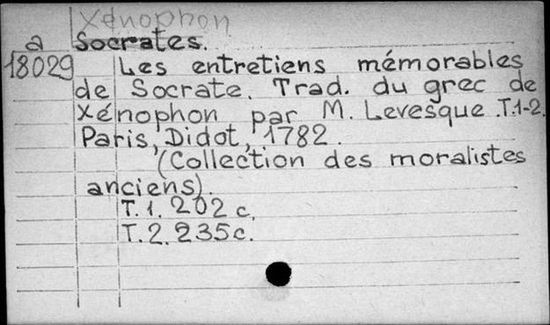 Xénophon
a Socrates.
18029 Les entretiens mémorables
de Socrate. Trad. du grec de
Xénophon par M. Levesque.T.1-2.
Paris, Didot, 1782.
(Collection des moralistes
anciens).
T.1. 202 c.
T.2. 235c.